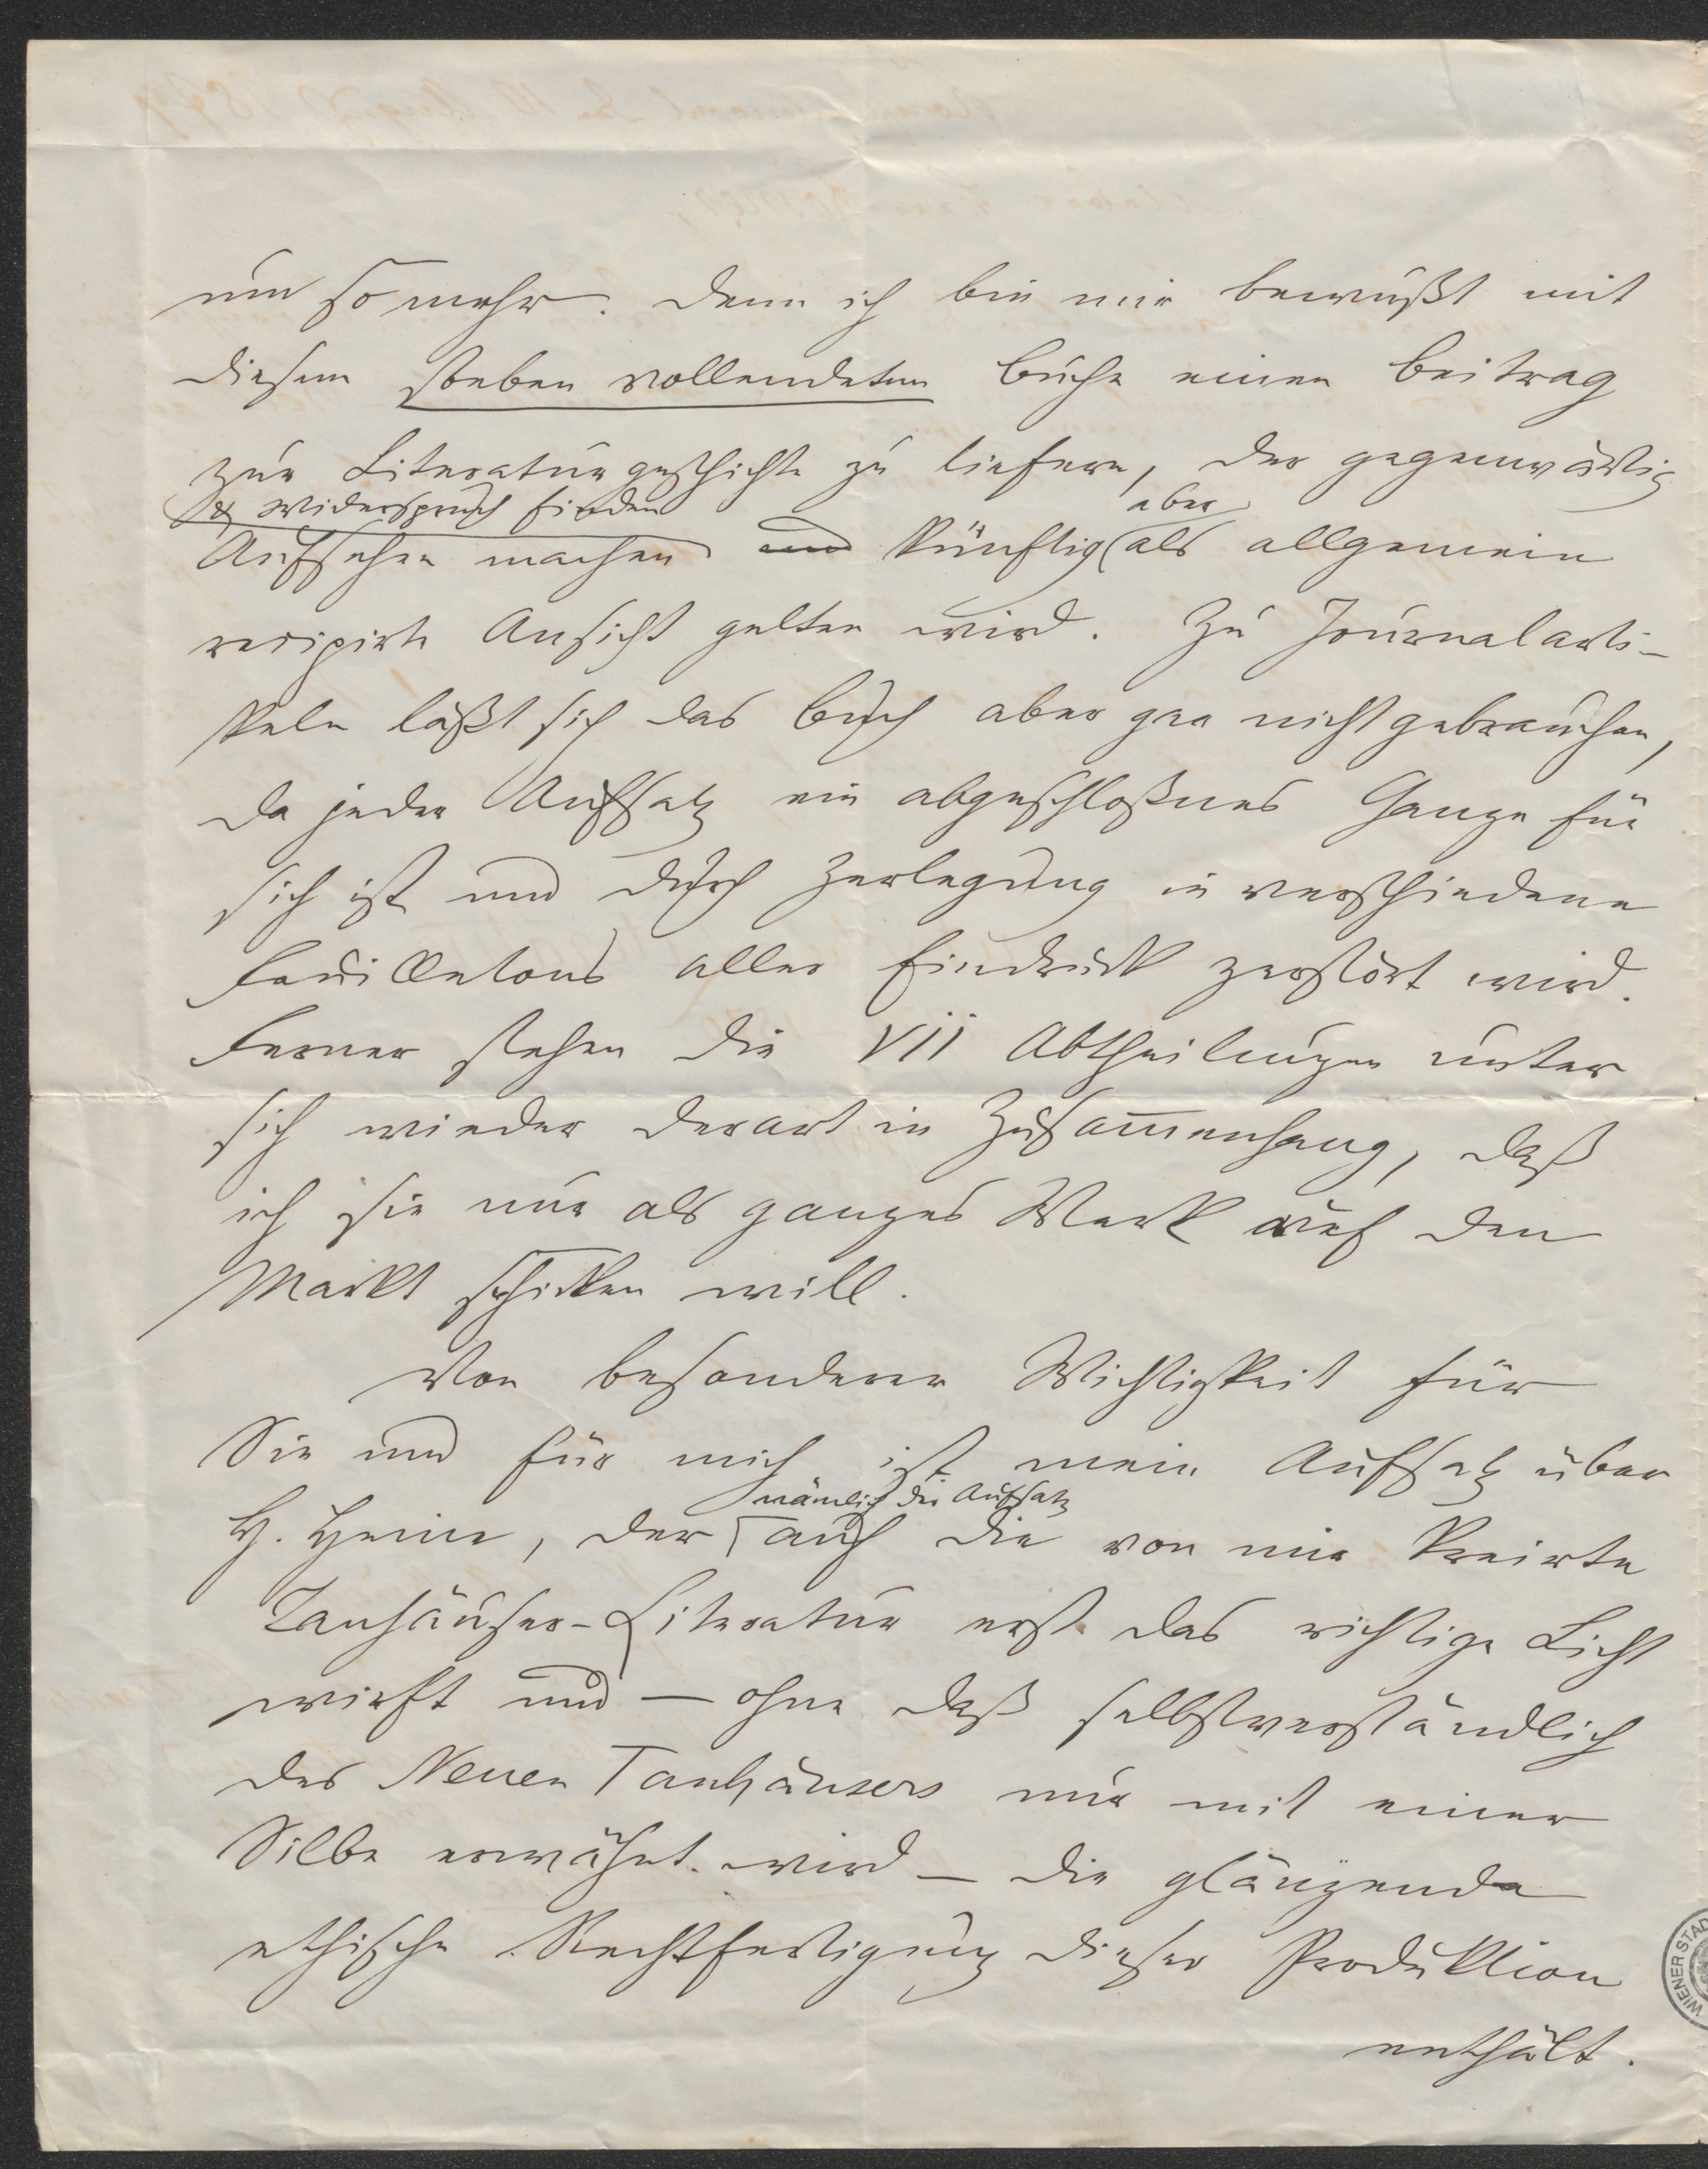 um so mehr. Denn ich bin mir bewußt mit
diesem soeben vollendeten Buche einen Beitrag
zur Literaturgeschichte zu liefern, der gegenwärtig
& Widerspruch finden aber
Aufsehen machen und künftig als allgemein
recipirte Ansicht gelten wird. Zu Journalarti-
keln läßt sich das Buch aber gar nicht gebrauchen,
da jeder Aufsatz ein abgeschloßnes Ganze für
sich ist und durch Zerlegung in verschiedene
Feuilletons aller Eindruck zerstört wird.
Ferner stehen die VII Abtheilungen unter
sich wieder derart in Zusam̅enhang, daß
ich sie nur als ganzes Werk auf den
Markt schicken will.
Von besonderer Wichtigkeit für
Sie und für mich ist mein Aufsatz über
nämlich der Aufsatz
H. Heine, der auf die von mir kreirte
Tanhäuser-Literatur erst das richtige Licht
wirft und — ohne daß selbstverständlich
des Neuen Tanhäusers nur mit einer
Silbe erwähnt wird — die glänzende
ethische Rechtfertigung dieser Produktion
enthält.
WIENER STAD